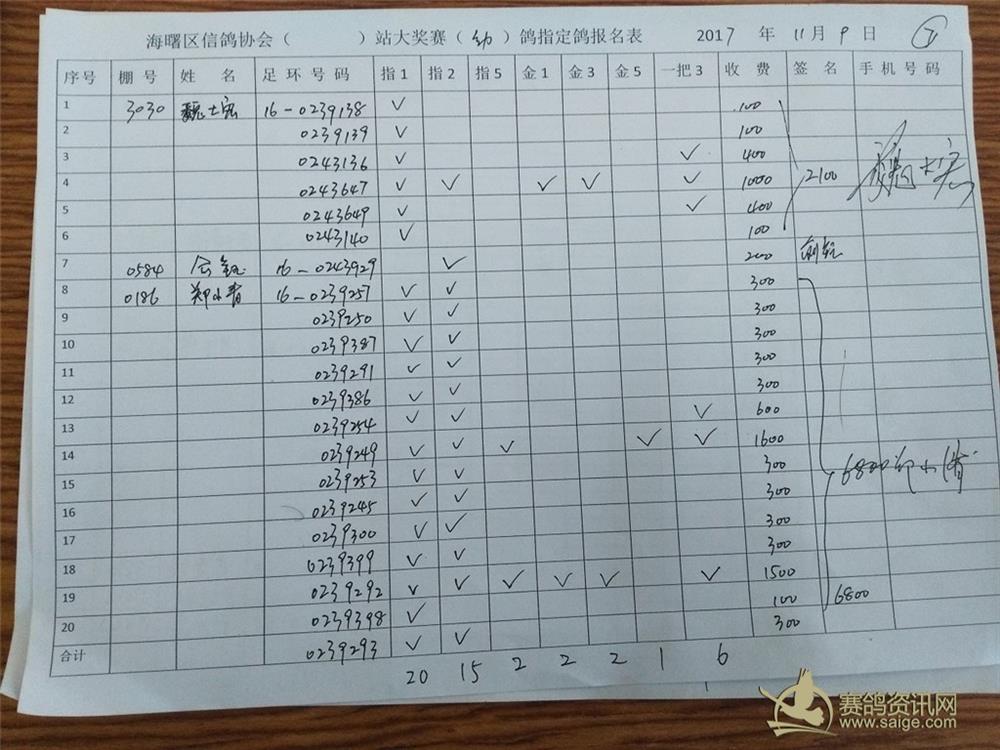 海曙区信鸽协会（ ）站大奖赛（幼）鸽指定鸽报名表 2017 年 11月 9 日
序号 棚号 姓名 足环号码 指1 指2 指5 金1 金3 金5 一把3 收费 签名 手机号码
1 3030 魏士宏 16-0239138 ✓ 100
2 0239139 ✓ 100
3 0243136 ✓ ✓ 400
4 0243647 ✓ ✓ ✓ ✓ ✓ 1000 2100 魏士宏
5 0243649 ✓ ✓ 400
6 0243140 ✓ 100
7 0584 16-0243929 ✓ 200
8 0186 郑小青 16-0239257 ✓ ✓ 300
9 0239250 ✓ ✓ 300
10 0239387 ✓ ✓ 300
11 0239291 ✓ ✓ 300
12 0239386 ✓ ✓ 300
13 0239254 ✓ ✓ ✓ 600
14 0239249 ✓ ✓ ✓ ✓ ✓ 1600
15 0239253 ✓ ✓ 300 6800 郑小清
16 0239245 ✓ ✓ 300
17 0239300 ✓ ✓ 300
18 0239399 ✓ ✓ 300
19 0239292 ✓ ✓ ✓ ✓ ✓ ✓ 1500
20 0239398 ✓ 100 6800
合计 0239293 ✓ ✓ 300
20 15 2 2 2 1 6
赛鸽资讯网
www.saige.com